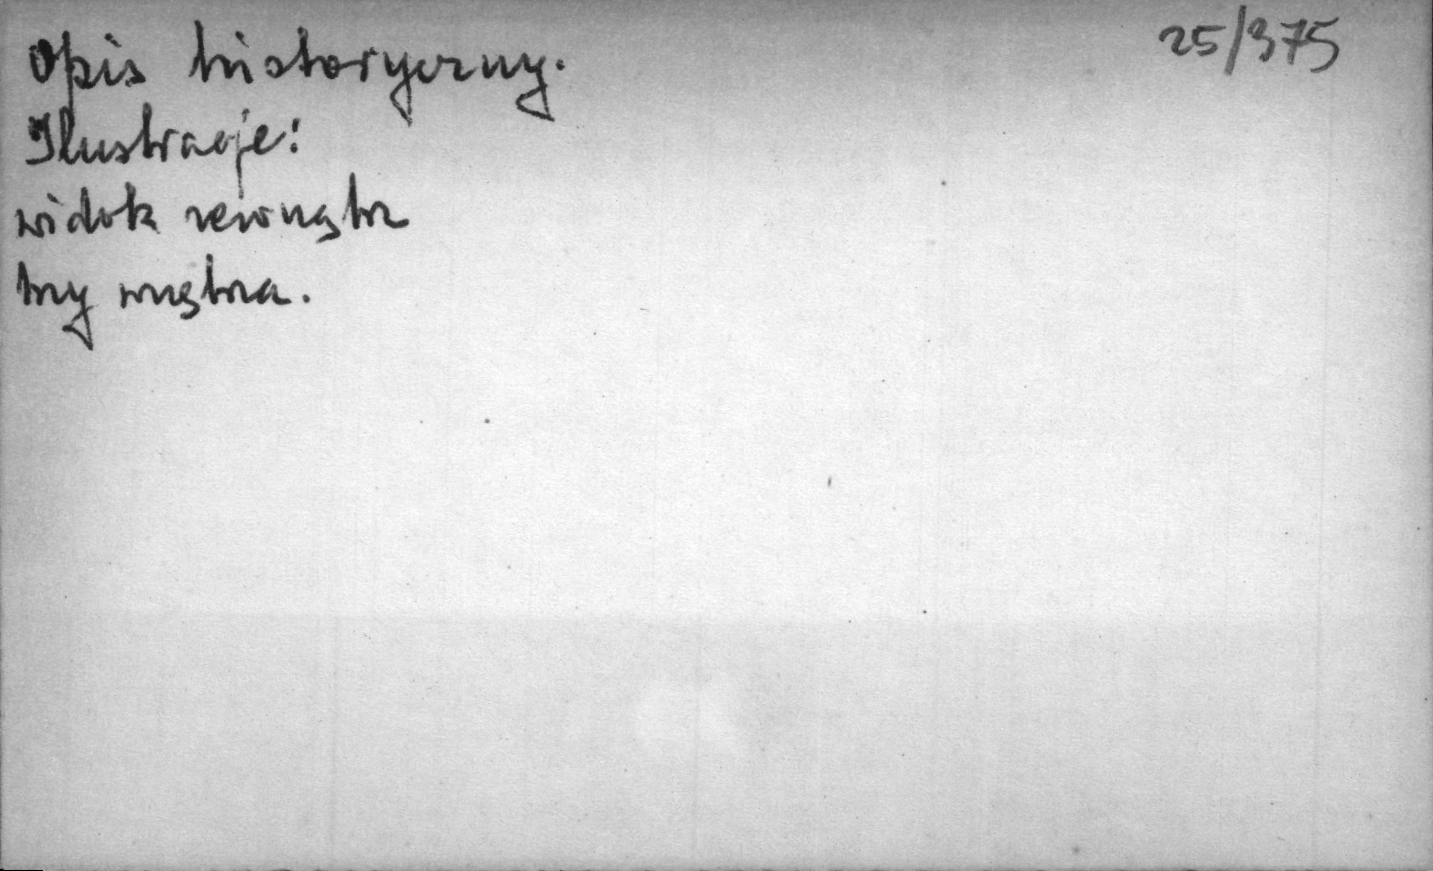 25/375
Opis historyczny.
Ilustracje:
widok zewnątrz
trzy wnętrza.